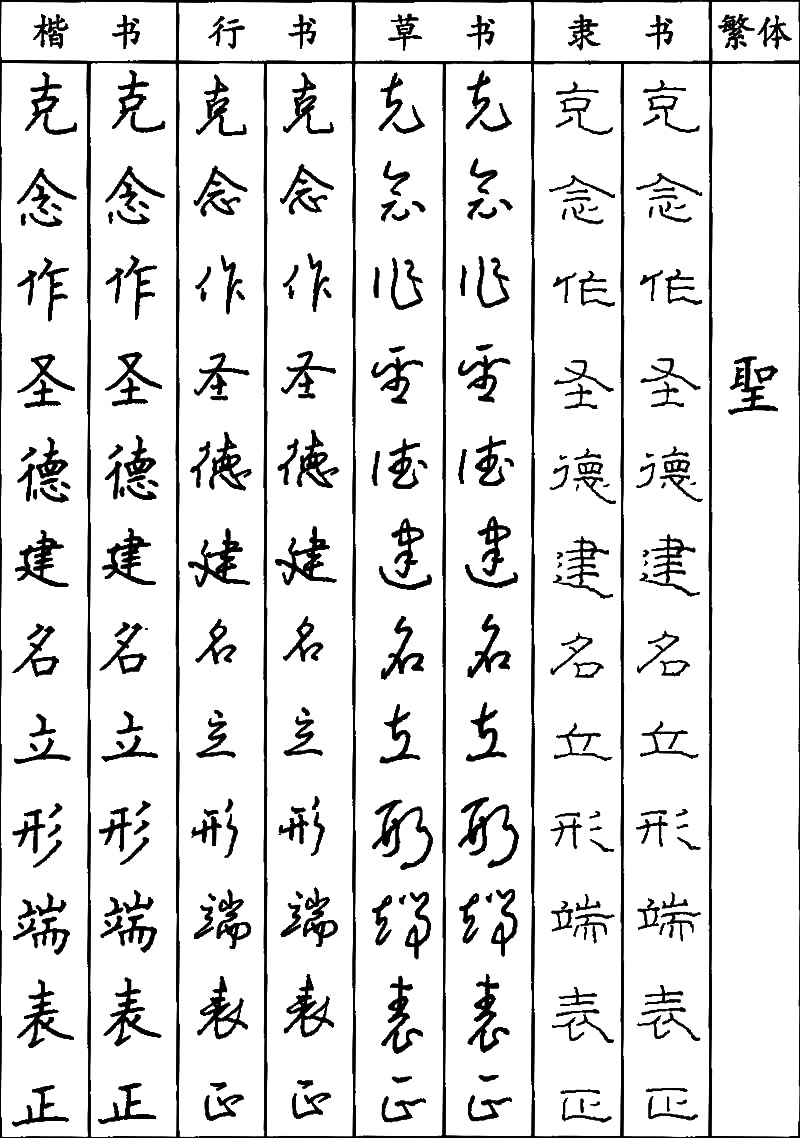 楷书 行书 草书 隶书 繁体
克 克 克 克 克 克 克 克
念 念 念 念 念 念 念 念
作 作 作 作 作 作 作 作
圣 圣 圣 圣 圣 圣 圣 圣 聖
德 德 德 德 德 德 德 德
建 建 建 建 建 建 建 建
名 名 名 名 名 名 名 名
立 立 立 立 立 立 立 立
形 形 形 形 形 形 形 形
端 端 端 端 端 端 端 端
表 表 表 表 表 表 表 表
正 正 正 正 正 正 正 正